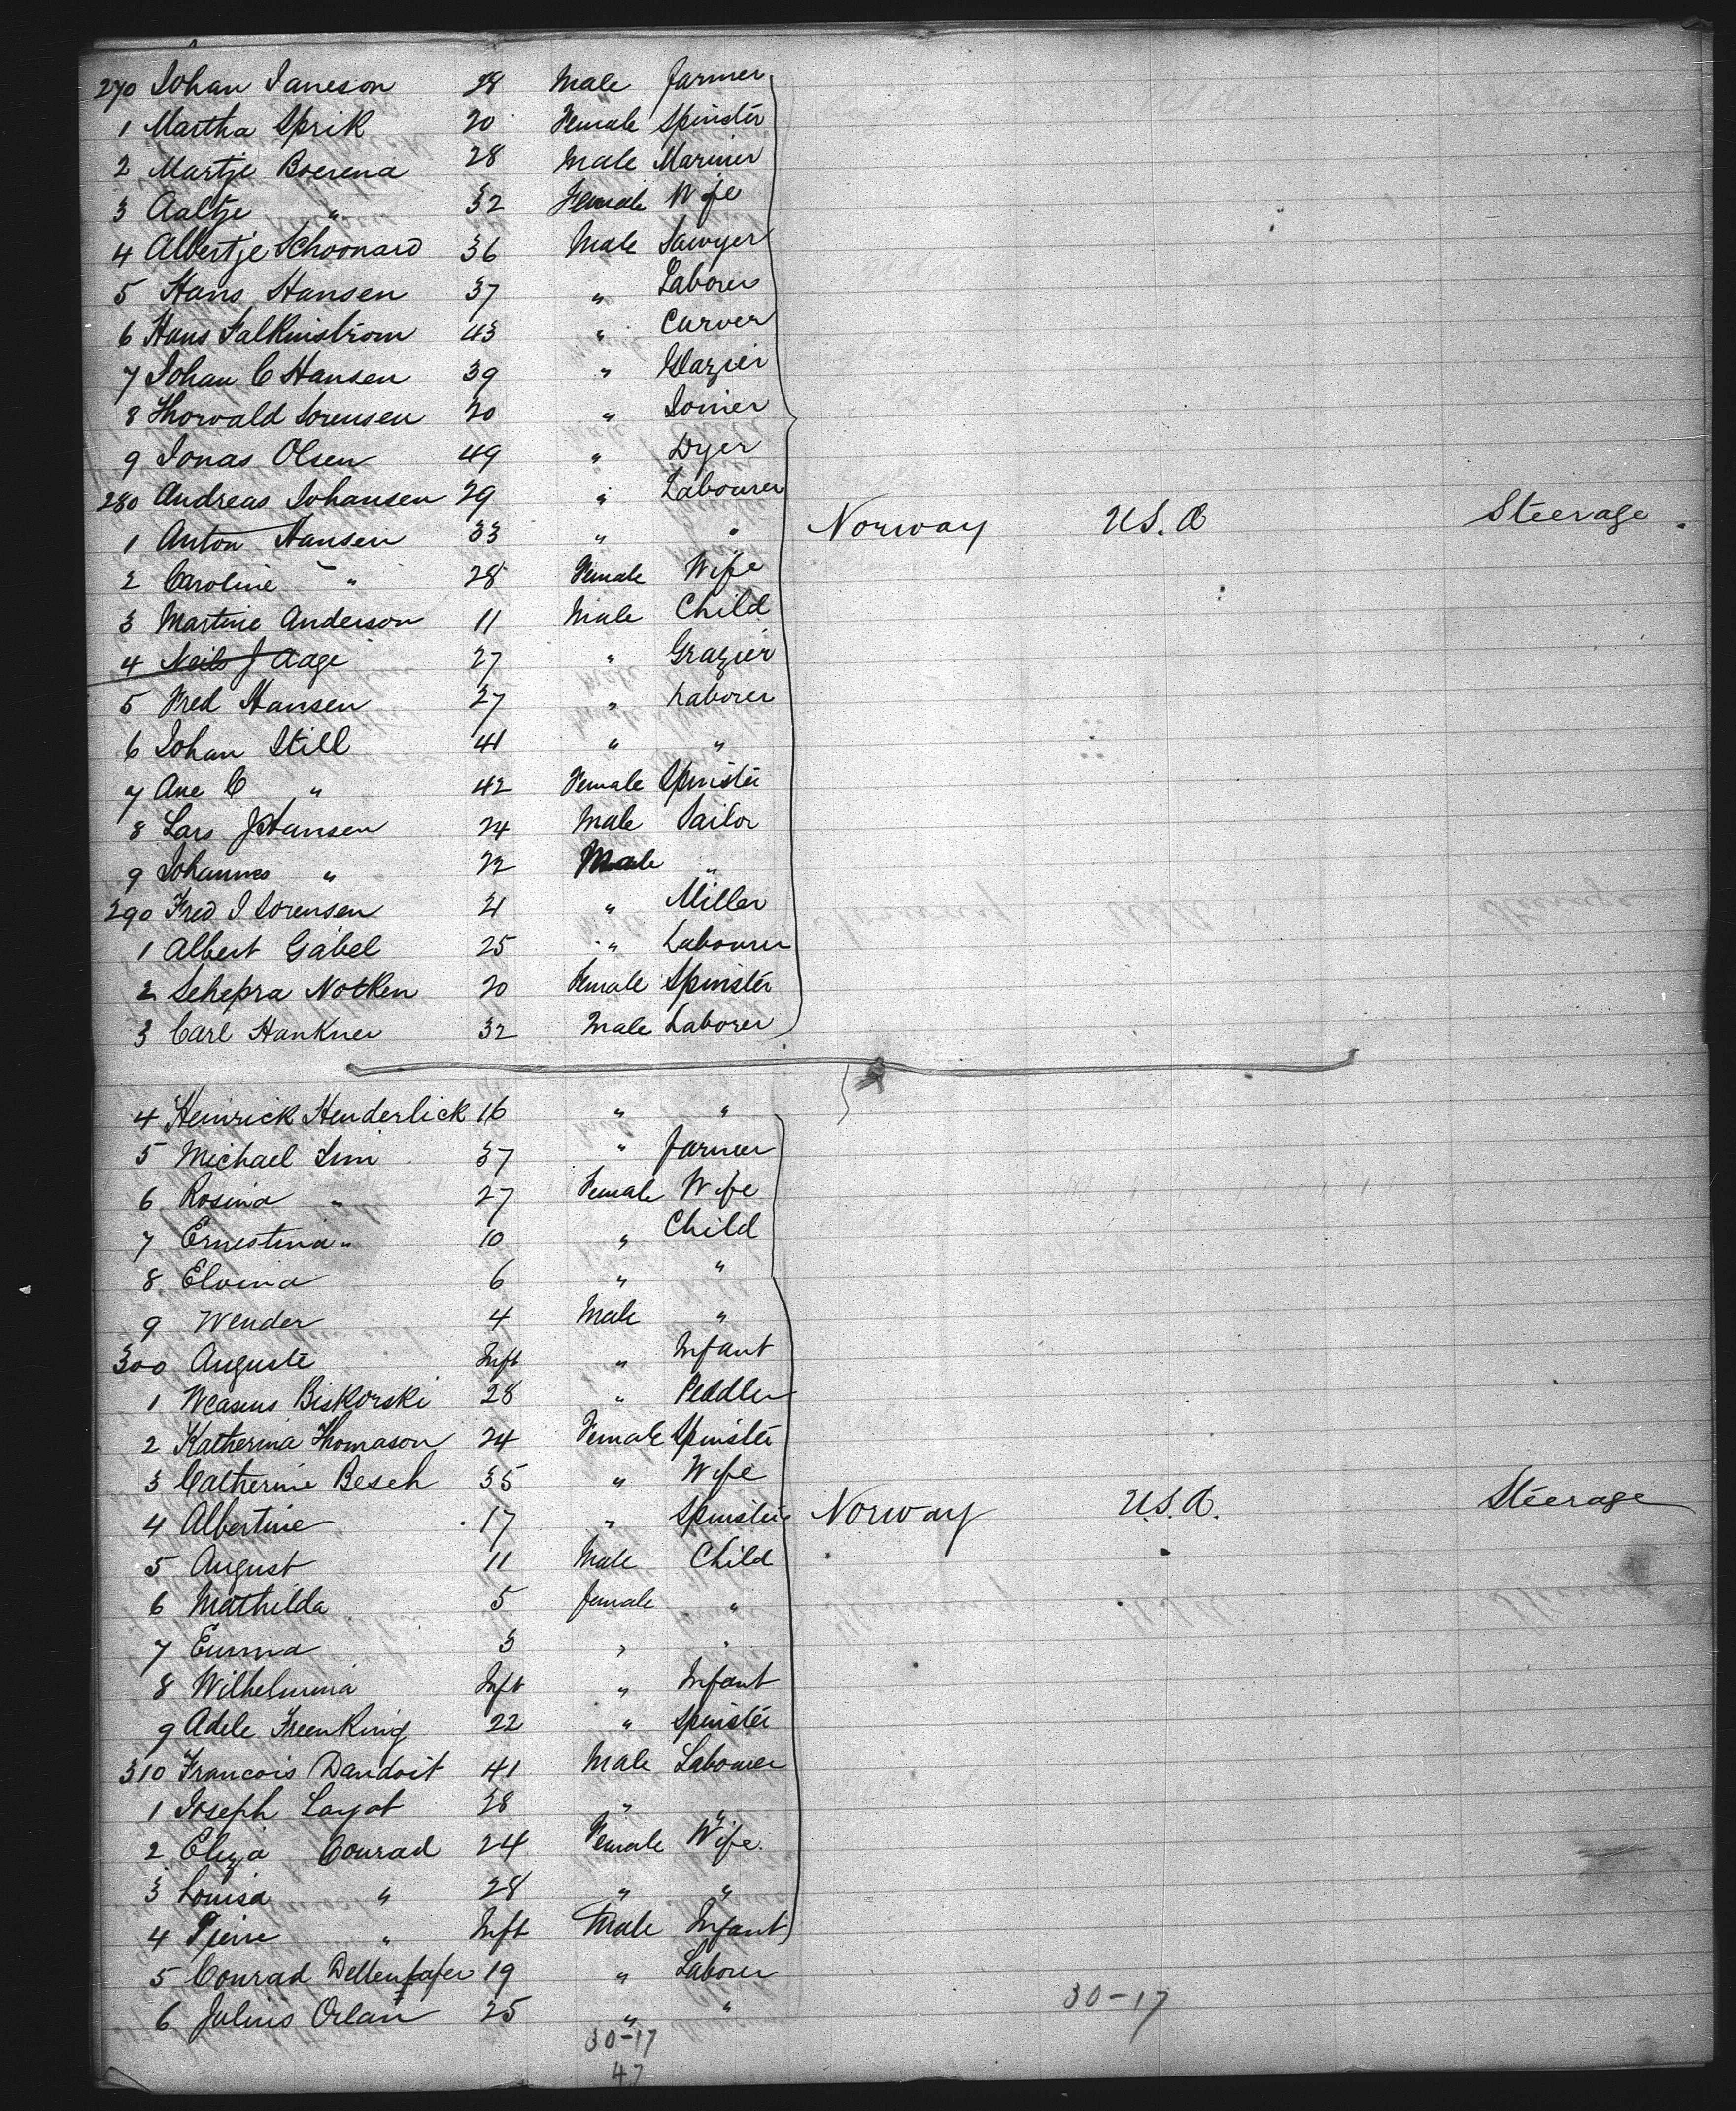 270 Johan Janeson 28 Male Farmer
1 Martha Sprik 20 Female Spinster
2 Martje Boerena 28 Male Mariner
3 Aaltje " 32 Female Wife
4 Albertje Schoonard 36 Male Sawyer
5 Hans Hansen 37 " Laborer
6 Hans Falkinstrom 43 " Carver
7 Johan C Hansen 39 " Glazier
8 Thorvald Sorensen 20 " Joiner
9 Jonas Olsen 49 " Dyer
280 Andreas Johansen 29 " Labourer
1 Anton Hansen 33 " " Norway U.S.A Steerage
2 Caroline " 28 Female Wife
3 Martine Anderson 11 Male Child
4 Neils J Aage 27 " Grazier
5 Fred Hansen 27 " Laborer
6 Johan Still 41 " "
7 Ane C " 42 Female Spinster
8 Lars J Hansen 24 Male Sailor
9 Johannes " 22 Male "
290 Fred J Sorensen 21 " Miller
1 Albert Gabel 25 " Labourer
2 Schepra Notken 20 Female Spinster
3 Carl Hankner 32 Male Laborer
4 Heinrick Henderlick 16 " "
5 Michael 37 " Farmer
6 Rosina " 27 Female Wife
7 Ernestina " 10 " Child
8 Elvina 6 " "
9 Wender 4 Male "
300 Auguste Inft " Infant
1 Biskorski 28 " Peddler
2 Katherina Thomason 24 Female Spinster
3 Catherine Besch 35 " Wife
4 Albertine 17 " Spinster Norway U.S.A. Steerage
5 August 11 Male Child
6 Mathilda 5 female "
7 Emma 3 " "
8 Wilhelmina Inft " Infant
9 Adele Freenking 22 " Spinster
310 Francois Dandoit 41 Male Labourer
1 Joseph Layot 28 " "
2 Eliza Conrad 24 Female Wife.
3 Louisa " 28 " "
4 Pierre " Inft Male Infant
5 Conrad 19 " Laborer
6 Julius Orlan 25 " "
30-17
30-17
47